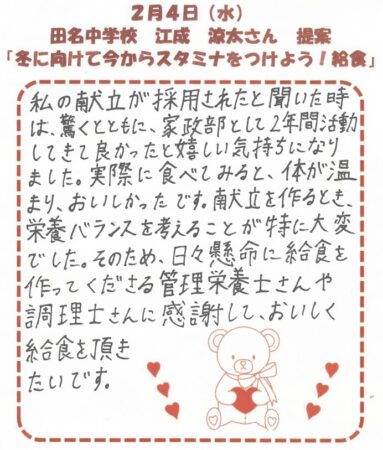 2月4日（水）
田名中学校　江成　涼太さん　提案
「冬に向けて今からスタミナをつけよう！給食」
私の献立が採用されたと聞いた時
は、驚くとともに、家政部として2年間活動
してきて良かったと嬉しい気持ちになり
ました。実際に食べてみると、体が温
まり、おいしかったです。献立を作るとき、
栄養バランスを考えることが特に大変
でした。そのため、日々懸命に給食を
作ってくださる管理栄養士さんや
調理士さんに感謝して、おいしく
給食を頂き
たいです。